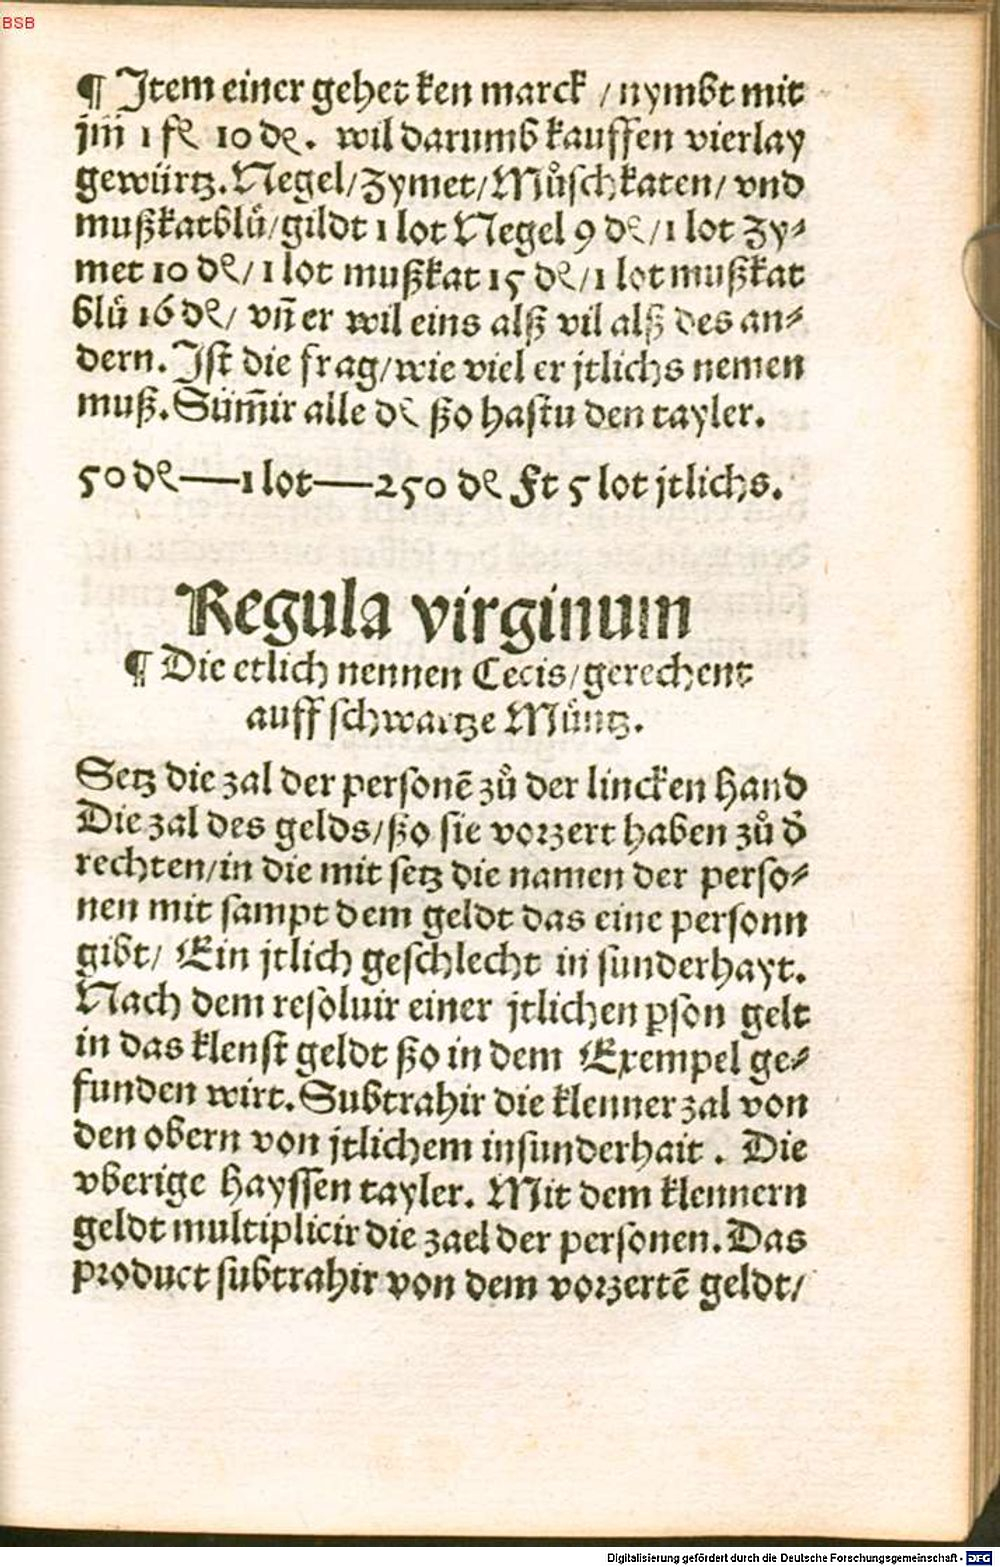 BSB
¶ Jtem einer gehet ken marck / nymbt mit
jm̄ 1 fl 10 ₰. wil darumb kauffen vierlay
gewürtz. Negel/ Zymet/ Můschkaten/ vnd
mußkatblů/ gildt 1 lot Negel 9 ₰/ 1 lot Zy⸗
met 10 ₰/ 1 lot mußkat 15 ₰/ 1 lot mußkat
blů 16 ₰/ vñ er wil eins alß vil alß des an⸗
dern. Jst die frag/ wie viel er jtlichs nemen
muß. Sum̄ir alle ₰ ßo hastu den tayler.
50 ₰——1 lot——250 ₰ Ft 5 lot jtlichs.
Regula virginum
¶ Die etlich nennen Cecis/ gerechent
auff schwartze Můntz.
Setz die zal der personē zů der lincken hand
Die zal des gelds/ ßo sie vorzert haben zů d̄
rechten/ in die mit setz die namen der perso⸗
nen mit sampt dem geldt das eine personn
gibt/ Ein jtlich geschlecht in sunderhayt.
Nach dem resoluir einer jtlichen ꝑson gelt
in das klenst geldt ßo in dem Exempel ge⸗
funden wirt. Subtrahir die klenner zal von
den obern von jtlichem insunderhait. Die
vberige hayssen tayler. Mit dem klennern
geldt multiplicir die zael der personen. Das
product subtrahir von dem vorzertē geldt/
Digitalisierung gefördert durch die Deutsche Forschungsgemeinschaft - DFG